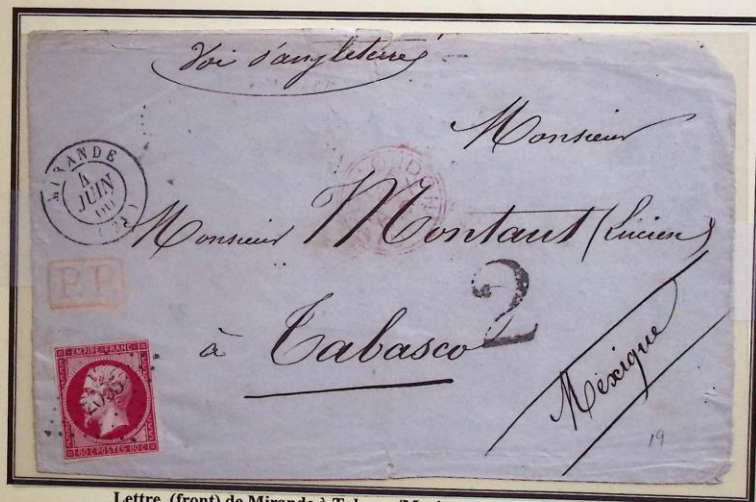 Voi d'angleterre
Monsieur
MIRANDE
4
JUIN
60
(31)
LONDON
Monsieur Montaut (Lucien)
P.P.
2
à Tabasco
Mexique
EMPIRE FRANC
80 C POSTES 80 C
19
Lettre (front) de Mirande à